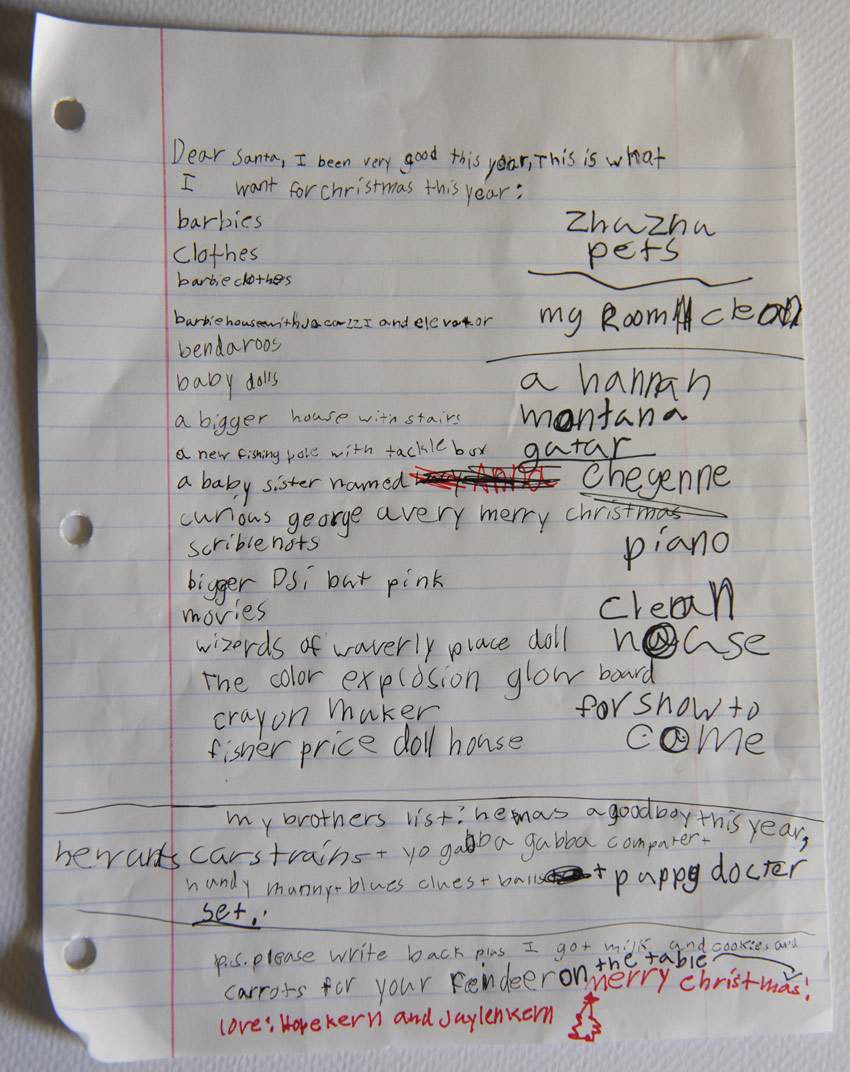 Dear Santa, I been very good this year, This is what
I want for christmas this year:
barbies
clothes
barbie clothes
barbie house with Jacazzi and elevator
bendaroos
baby dolls
a bigger house with stairs
a new fishing pole with tackle box
a baby sister named Anna cheyenne
curious george a very merry christmas
scriblenots
bigger DSi but pink
movies
wizerds of waverly place doll
The color explosion glow board
crayon maker
fisher price doll house
zhuzhu
pets
my Room clean
a hannah
montana
gatar
piano
clean
house
for snow to
come
my brothers list: he was a good boy this year,
he wants cars trains + yo gabba gabba computer +
handy manny + blues clues + balls + puppy docter
set.
p.s. please write back plus I got milk and cookies and
carrots for your Reindeer on the table merry christmas!
love: Hope kern and Jaylen kern